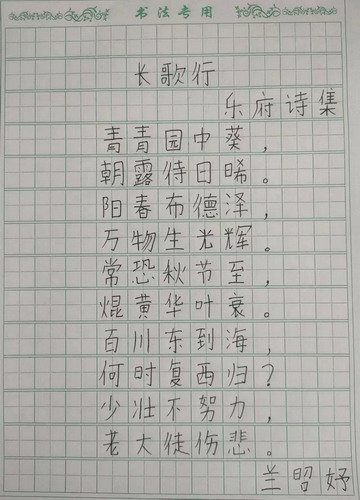 书法专用
长歌行
乐府诗集
青青园中葵，
朝露待日晞。
阳春布德泽，
万物生光辉。
常恐秋节至，
焜黄华叶衰。
百川东到海，
何时复西归？
少壮不努力，
老大徒伤悲。
兰昭妤